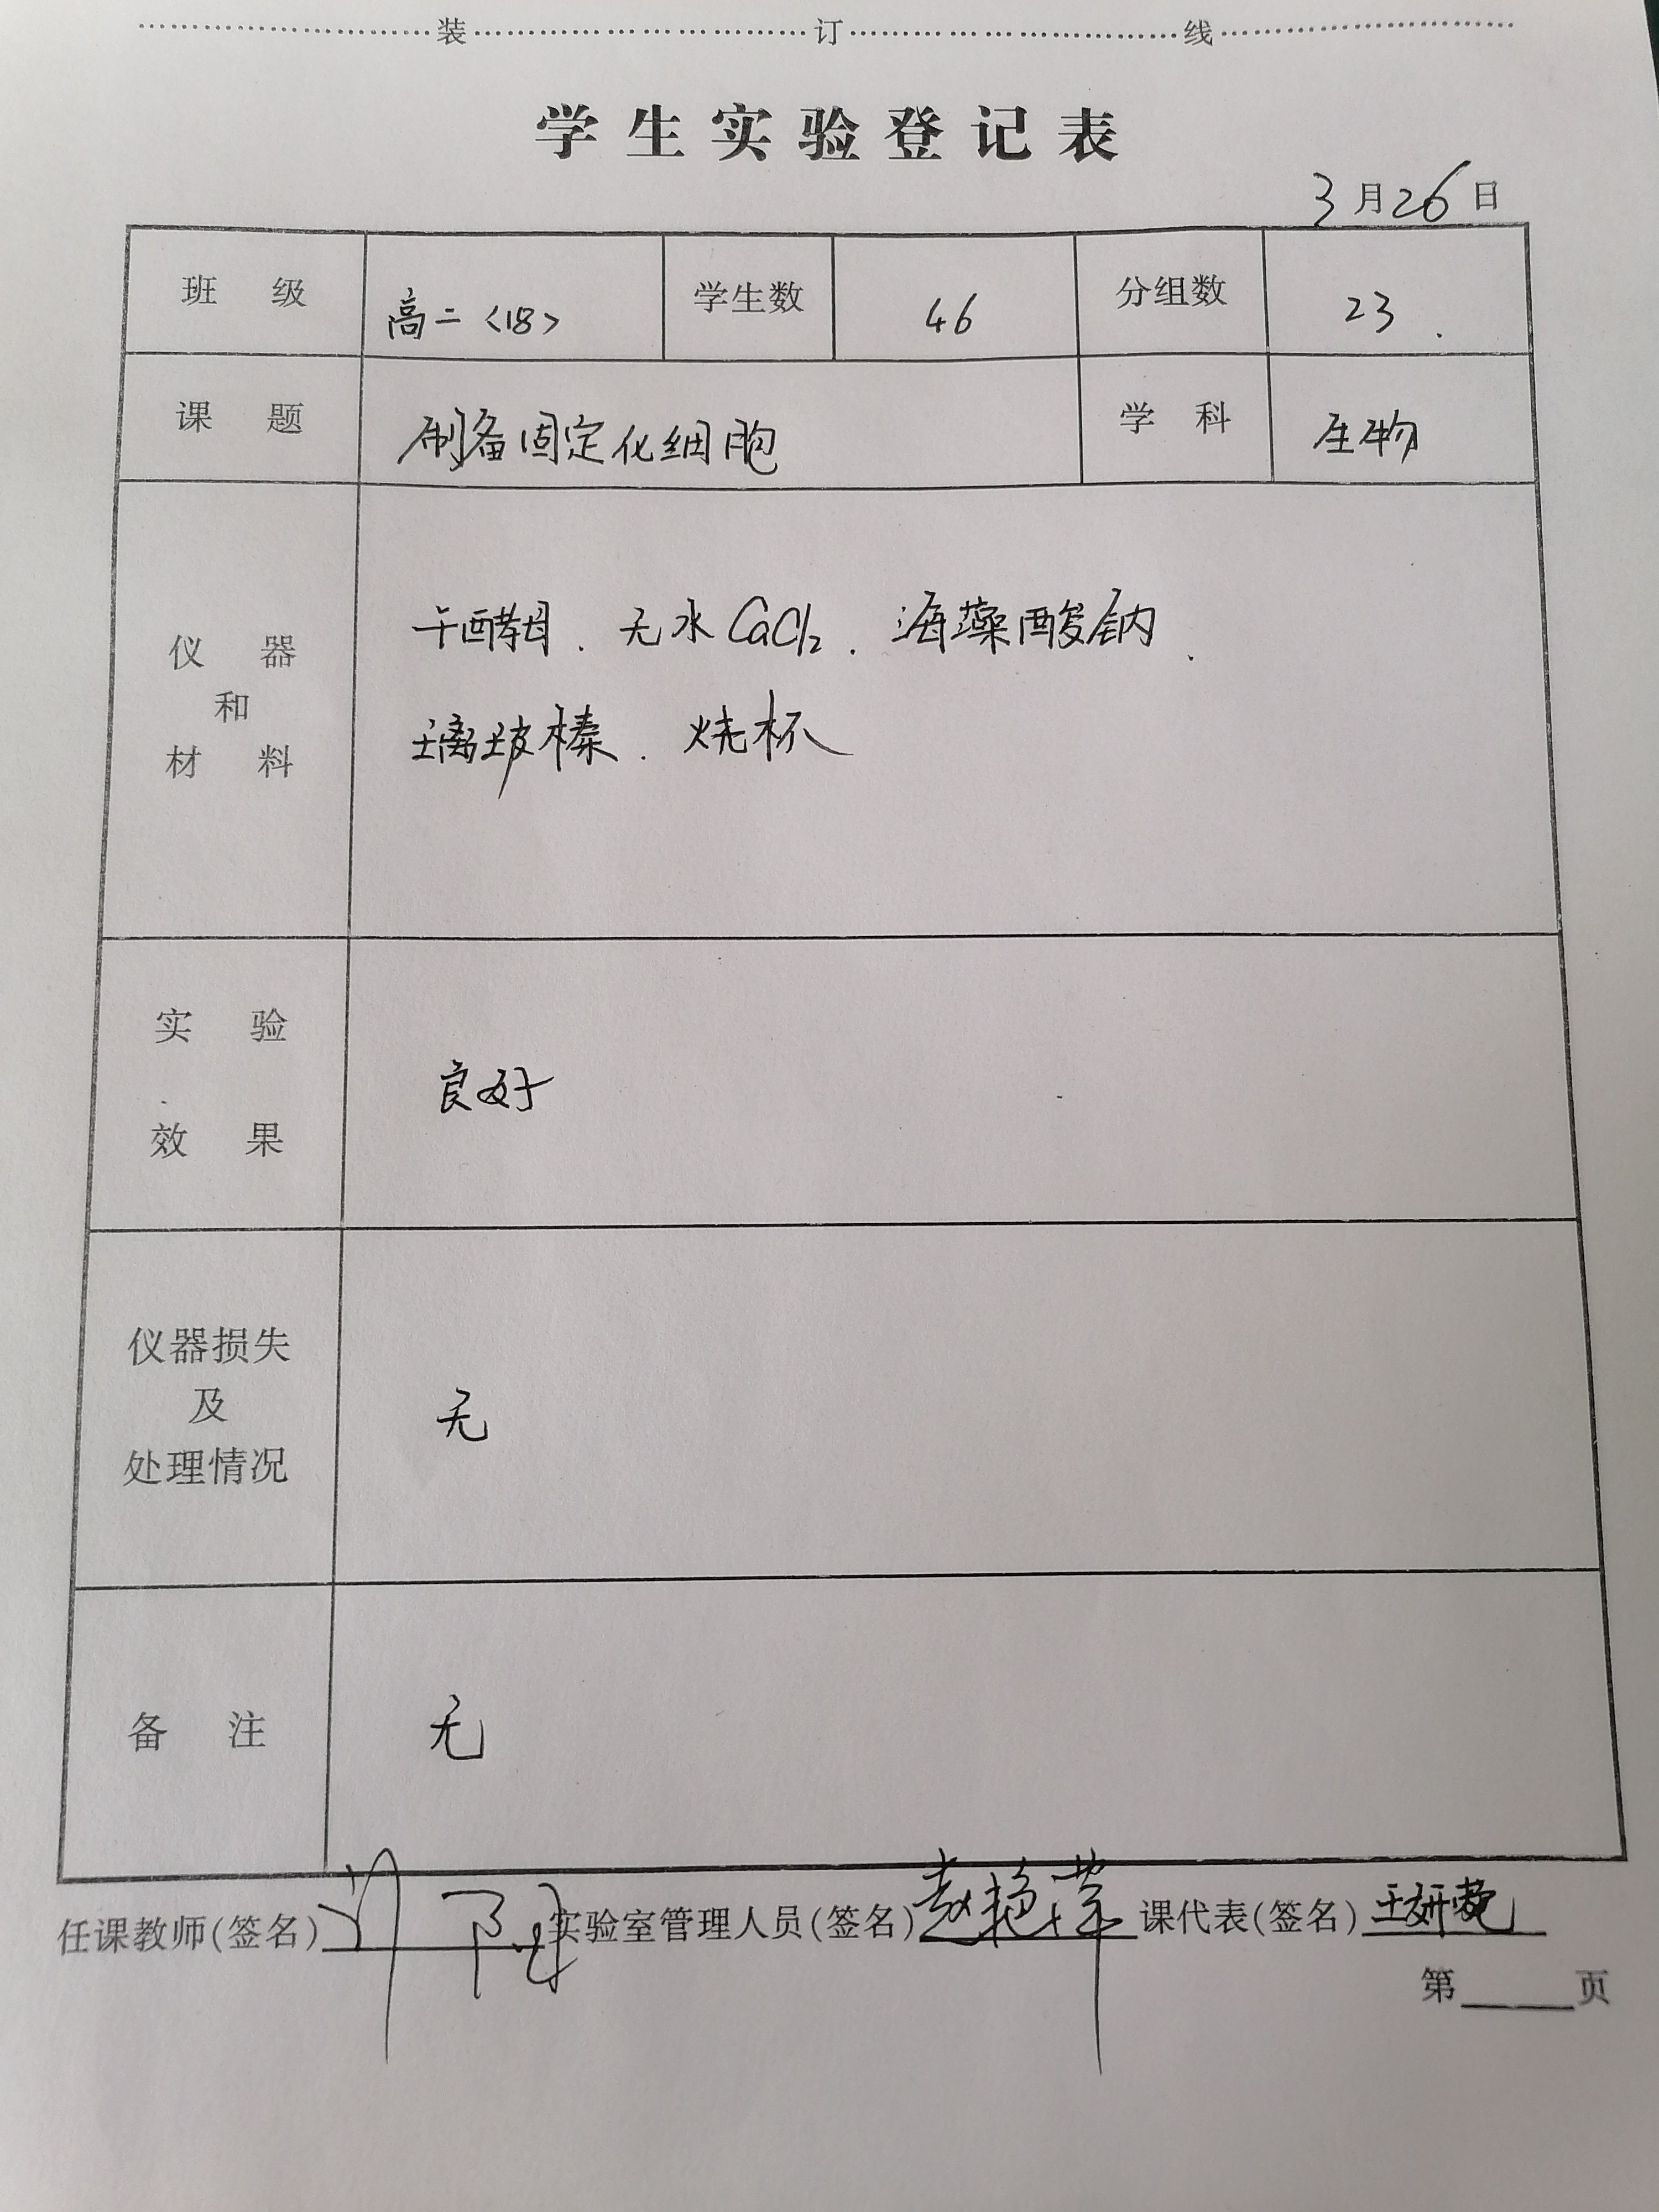 装 订 线
学生实验登记表
3月26日
班 级 高二<18> 学生数 46 分组数 23.
课 题 制备固定化细胞 学 科 生物
仪 器 和 材 料
干酵母、无水CaCl₂、海藻酸钠、
璃玻榛、烧杯
实 验
效 果
良好
仪器损失
及
处理情况
无
备 注 无
任课教师(签名) 实验室管理人员(签名) 课代表(签名)
第 页